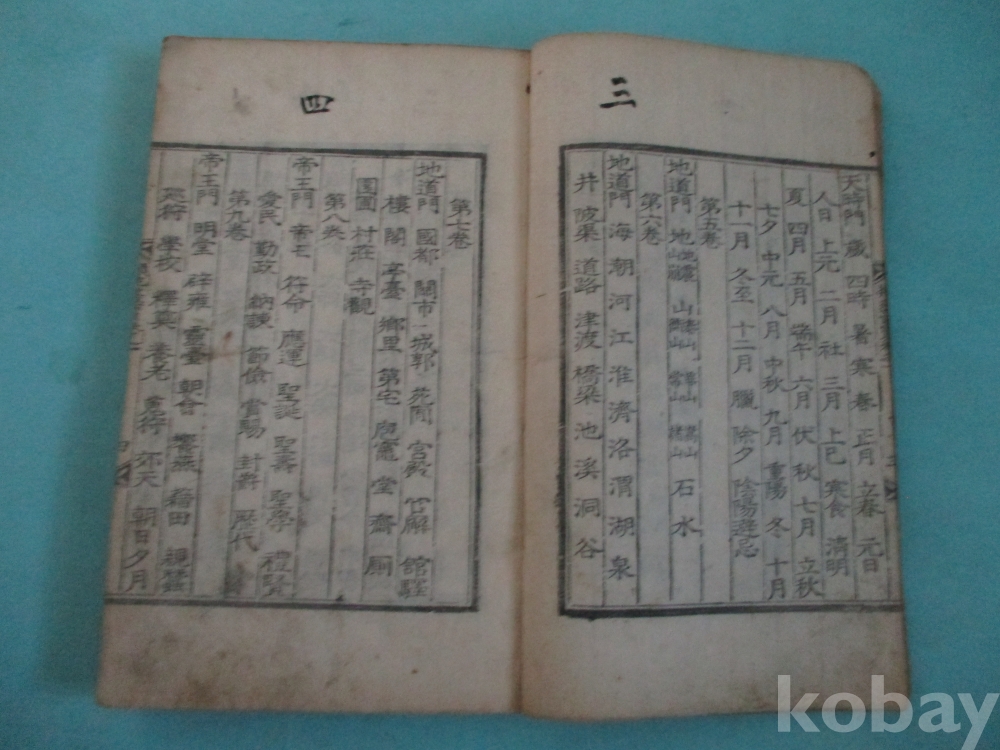 三
天時門 歲 四時 暑 寒 春 正月 立春 元日
人日 上元 二月 社 三月 上巳 寒食 清明
夏 四月 五月 端午 六月 伏 秋 七月 立秋
七夕 中元 八月 中秋 九月 重陽 冬 十月
十一月 冬至 十二月 臘 除夕 陰陽避忌
第五卷
地道門 地 山 石 水
第六卷
地道門 海 潮 河 江 淮 濟 洛 渭 湖 泉
井 陂渠 道路 津渡 橋梁 池 溪 洞 谷
四
第七卷
地道門 國都 關市 城郭 苑囿 宮殿 官廨 館驛
樓閣 亭臺 鄉里 第宅 堂 齋 廁
園圃 村莊 寺觀
第八卷
帝王門 帝王 符命 應運 聖誕 聖壽 聖學 禮賢
愛民 勤政 納諫 節儉 賞賜 封爵 歷代
第九卷
帝王門 明堂 辟雍 靈臺 朝會 饗燕 藉田 視蠶
巡狩 學校 釋奠 養老 郊天 朝日夕月